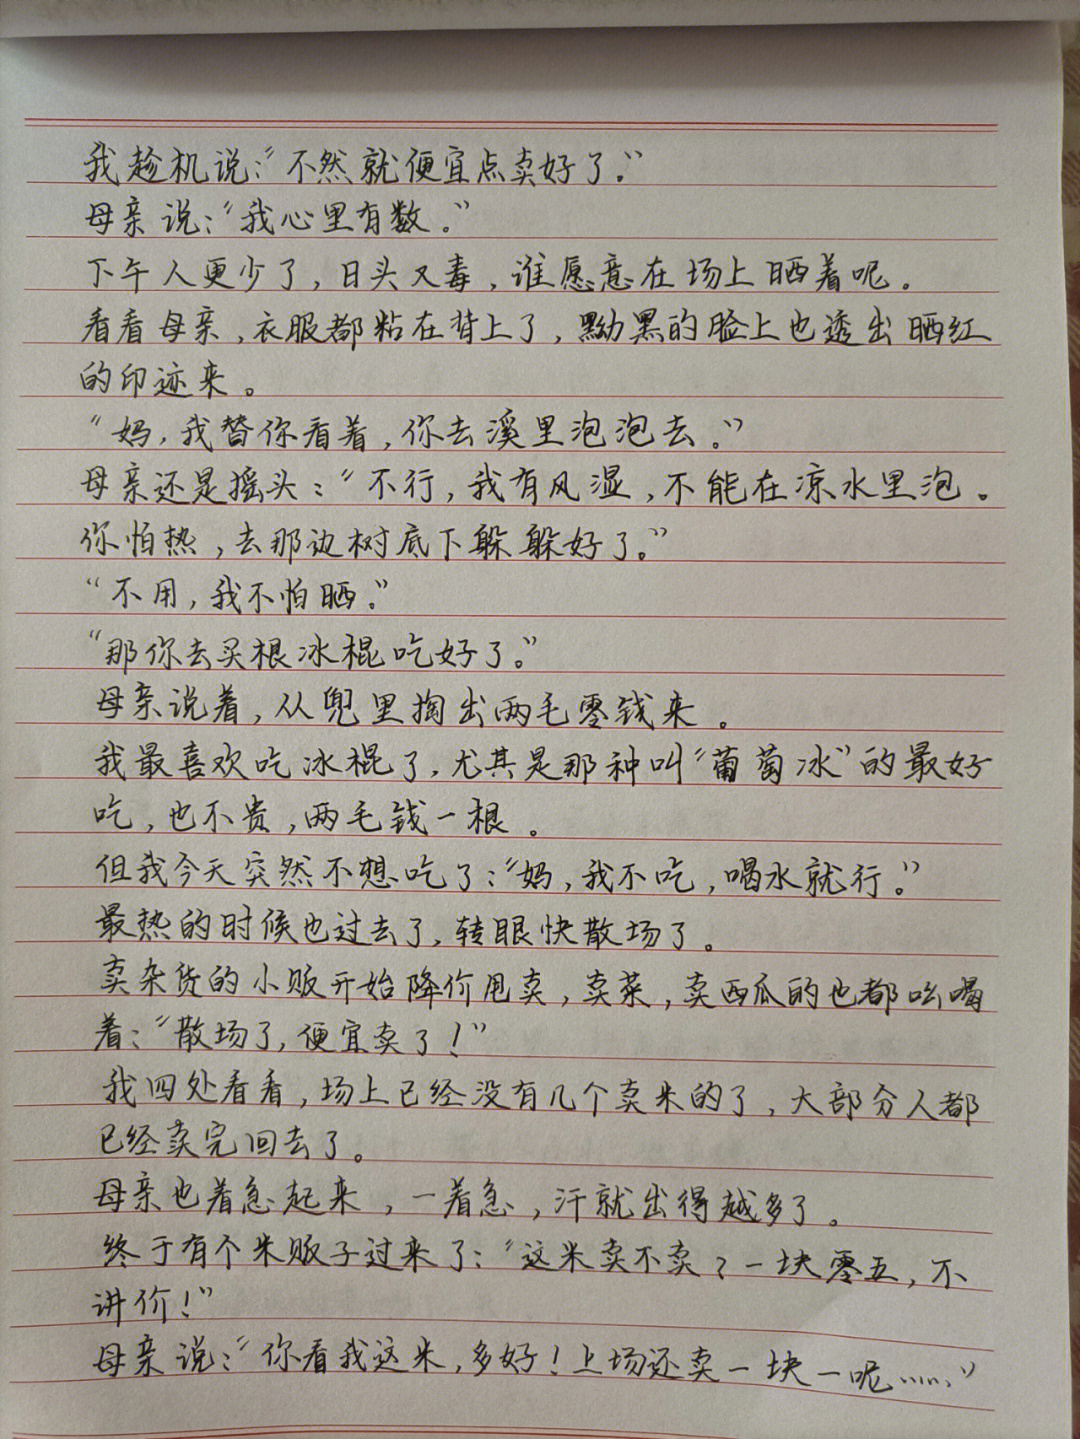 我趁机说：“不然就便宜点卖好了。”
母亲说：“我心里有数。”
下午人更少了，日头又毒，谁愿意在场上晒着呢。
看看母亲，衣服都粘在背上了，黝黑的脸上也透出晒红
的印迹来。
“妈，我替你看着，你去溪里泡泡去。”
母亲还是摇头：“不行，我有风湿，不能在凉水里泡。
你怕热，去那边树底下躲躲好了。”
“不用，我不怕晒。”
“那你去买根冰棍吃好了。”
母亲说着，从兜里掏出两毛零钱来。
我最喜欢吃冰棍了，尤其是那种叫“葡萄冰”的最好
吃，也不贵，两毛钱一根。
但我今天突然不想吃了：“妈，我不吃，喝水就行。”
最热的时候也过去了，转眼快散场了。
卖杂货的小贩开始降价甩卖，卖菜，卖西瓜的也都吆喝
着：“散场了，便宜卖了！”
我四处看看，场上已经没有几个卖米的了，大部分人都
已经卖完回去了。
母亲也着急起来，一着急，汗就出得越多了。
终于有个米贩子过来了：“这米卖不卖？一块零五，不
讲价！”
母亲说：“你看我这米，多好！上场还卖一块一呢……”